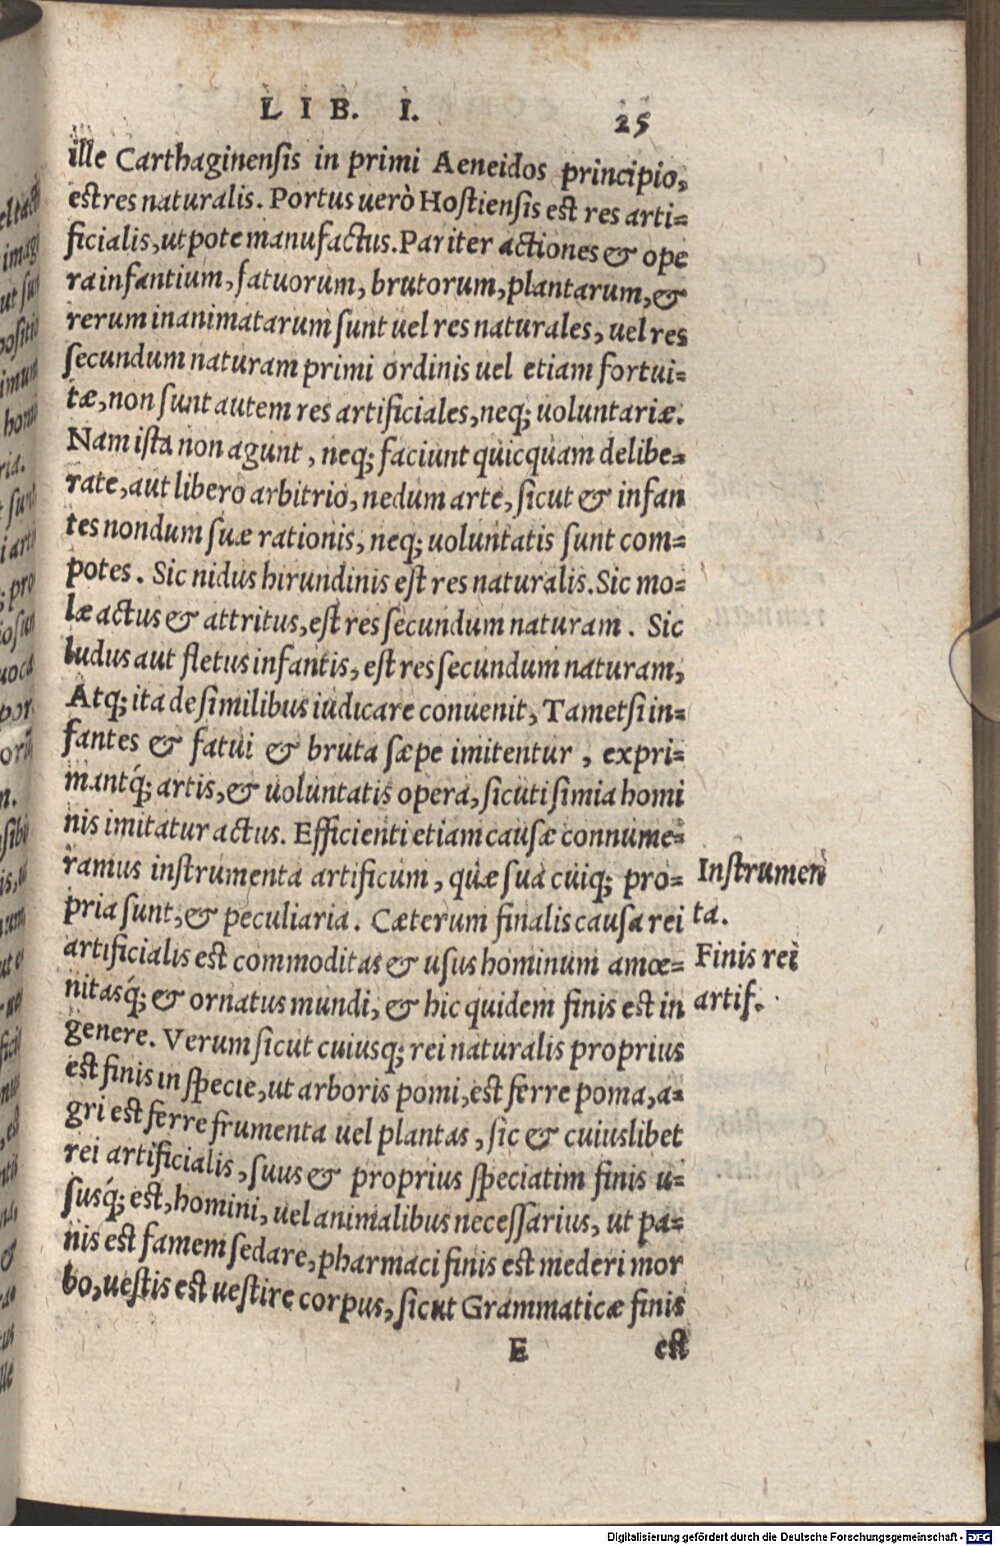 LIB. I. 25
ille Carthaginensis in primi Aeneidos principio,
est res naturalis. Portus uerò Hostiensis est res arti=
ficialis, utpote manufactus. Pariter actiones & ope
ra infantium, fatuorum, brutorum, plantarum, &
rerum inanimatarum sunt uel res naturales, uel res
secundum naturam primi ordinis uel etiam fortui=
tæ, non sunt autem res artificiales, neq; uoluntariæ.
Nam ista non agunt, neq; faciunt quicquam delibe=
rate, aut libero arbitrio, nedum arte, sicut & infan
tes nondum suæ rationis, neq; uoluntatis sunt com=
potes. Sic nidus hirundinis est res naturalis. Sic mo=
læ actus & attritus, est res secundum naturam. Sic
ludus aut fletus infantis, est res secundum naturam,
Atq; ita de similibus iudicare conuenit, Tametsi in=
fantes & fatui & bruta sæpe imitentur, expri=
mantq́; artis, & uoluntatis opera, sicuti simia homi
nis imitatur actus. Efficienti etiam causæ connume=
ramus instrumenta artificum, quæ sua cuiq; pro=
pria sunt, & peculiaria. Cæterum finalis causa rei
artificialis est commoditas & usus hominum amœ=
nitasq́; & ornatus mundi, & hic quidem finis est in
genere. Verum sicut cuiusq; rei naturalis proprius
est finis in specie, ut arboris pomi, est ferre poma, a=
gri est ferre frumenta uel plantas, sic & cuiuslibet
rei artificialis, suus & proprius speciatim finis u=
susq́; est, homini, uel animalibus necessarius, ut pa=
nis est famem sedare, pharmaci finis est mederi mor
bo, uestis est uestire corpus, sicut Grammaticæ finis
E est
Instrumen
ta.
Finis rei
artif.
Digitalisierung gefördert durch die Deutsche Forschungsgemeinschaft - DFG